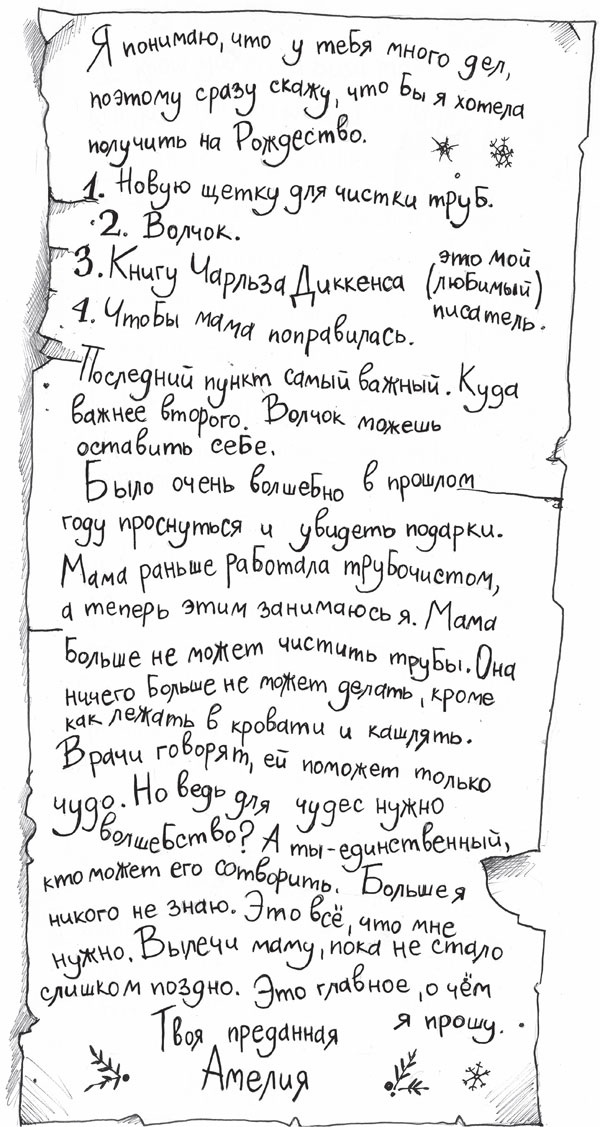 Я понимаю, что у тебя много дел,
поэтому сразу скажу, что бы я хотела
получить на Рождество.
1. Новую щетку для чистки труб.
2. Волчок.
3. Книгу Чарльза Диккенса (это мой любимый писатель.)
4. Чтобы мама поправилась.
Последний пункт самый важный. Куда
важнее второго. Волчок можешь
оставить себе.
Было очень волшебно в прошлом
году проснуться и увидеть подарки.
Мама раньше работала трубочистом,
а теперь этим занимаюсь я. Мама
больше не может чистить трубы. Она
ничего больше не может делать, кроме
как лежать в кровати и кашлять.
Врачи говорят, ей поможет только
чудо. Но ведь для чудес нужно
волшебство? А ты-единственный,
кто может его сотворить. Больше я
никого не знаю. Это всё, что мне
нужно. Вылечи маму, пока не стало
слишком поздно. Это главное, о чём
я прошу.
Твоя преданная
Амелия